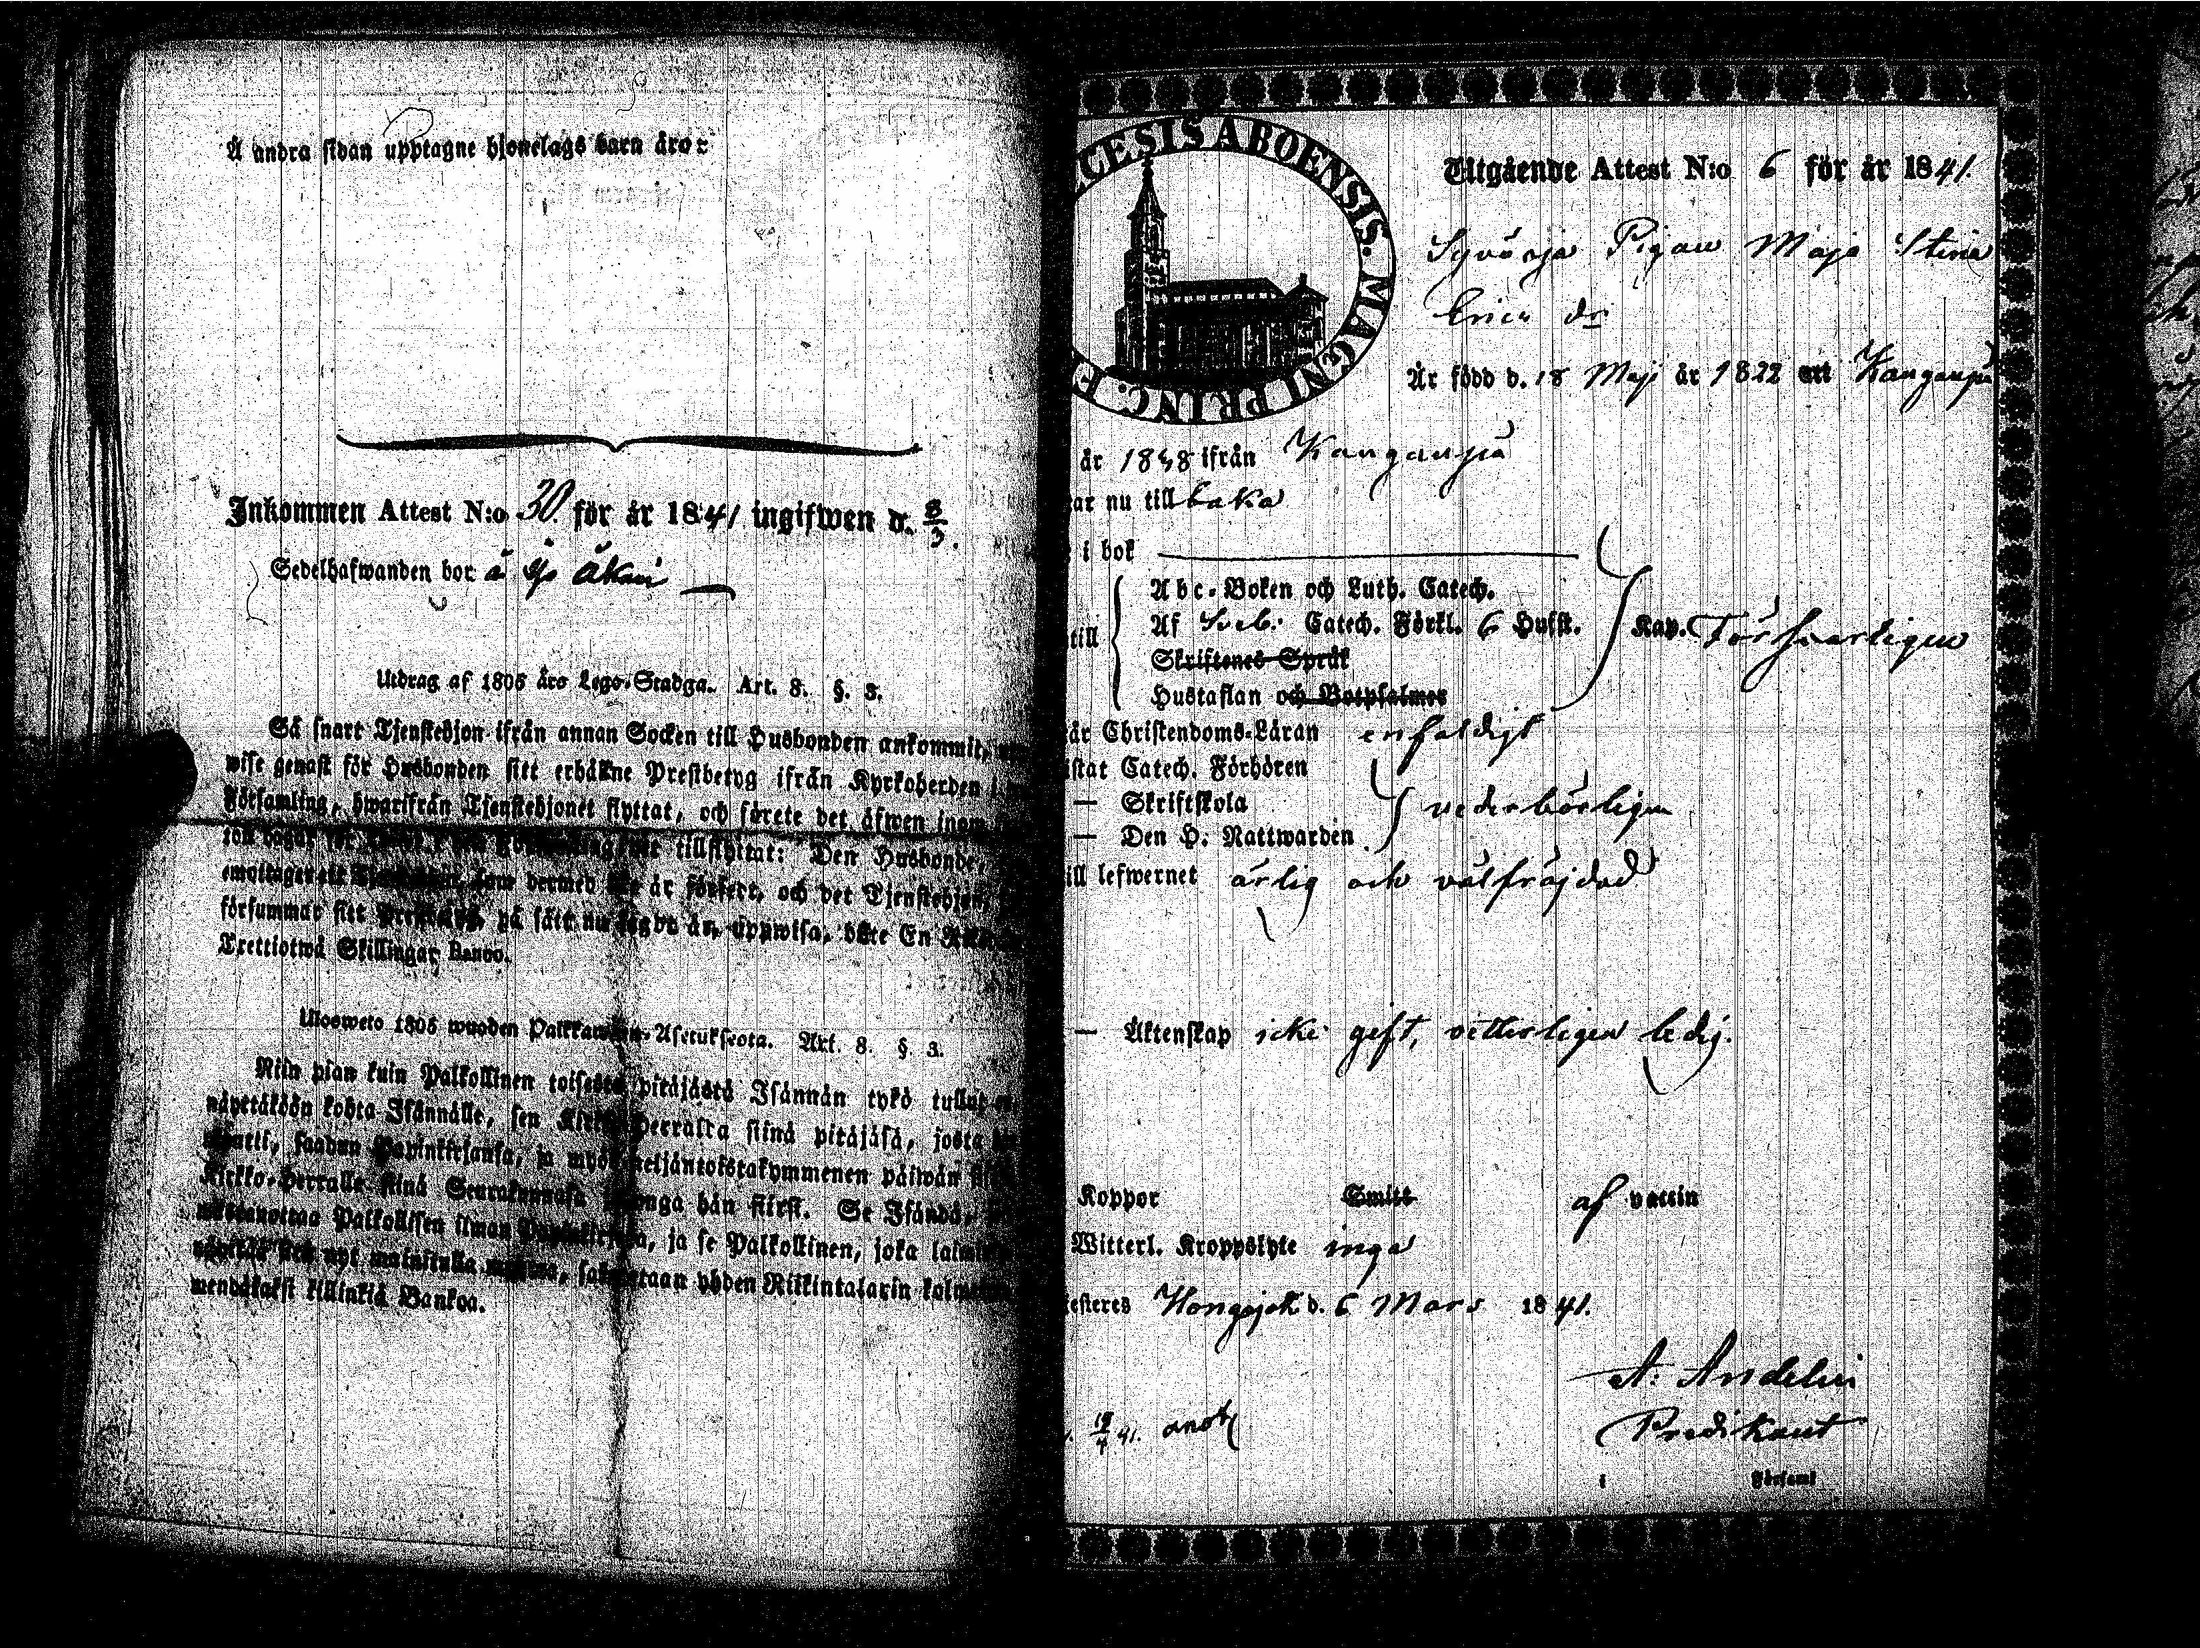 Å andra sidan upptagne hjonelags barn äro:
Inkommen Attest N:o 30. för år 1841 ingifwen d. 8/3.
Sedelhafwanden bor å
Utdrag af 1805 års Lego-Stadga. Art. 8. §. 3.
Så snart Tjenstehjon ifrån annan Socken till Husbonden ankommit,
wise genast för Husbonden sitt erhållne Prestbetyg ifrån Kyrkoherden i
Församling, hwarifrån Tjenstehjonet flyttat, och förete det äfwen inom
ton dagar för tillflyttat: Den Husbonde,
emottager ett dermed är försedt, och det Tjenstehjon,
försummar sitt Prestbetyg, på sätt nu sagdt är, uppwisa, böte En
Trettiotwå Skillingar Banco.
Ulosweto 1805 wuoden Palkkawäen-Asetuksesta. Art. 8. §. 3.
Niin pian kuin Palkollinen toisesta pitäjästä Isännän tykö tullut
näyttäköön kohta Isännälle, sen Kirkko-Herralta siinä pitäjäsä, josta
muutti, saadun Papinkirjansa, ja myös neljäntoistakymmenen päiwän
Kirkko-Herralle siinä Seurakunnasa hän siirsi. Se Isändä,
wastaanottaa Palkollisen ilman Papinkirjata, ja se Palkollinen, joka
näyttää sen nyt mainitulla, sakotetaan yhden Riikintalarin
mendäkaksi killinkiä Bankoa.
ECESIS ABOENSIS. MAGNI PRINC. F
Utgående Attest N:o 6 för år 1841.
Pigan Maja Stina
Erics dr
Är född d. 18 Maji år 1822 i Kanganpä
år 1838 ifrån Kanganpä
ar nu tillbaka
i bok
Abc-Boken och Luth. Catech.
till Af Sveb. Catech. Förkl. 6 Hufst. Kan. Försvarligen
Skriftenes Språk
Hustaflan och Botpsalmer
är Christendoms-Läran enfaldigt
istat Catech. Förhören
— Skriftskola vederbörligen
— Den H. Nattwarden
ill lefwernet ärlig och välfräjdad
— Äktenskap icke gift, vetterligen ledig.
Koppor Smitt af vaccin
Witterl. Kroppslyte inga
testeres Hongojoki d. 6 Mars 1841.
A: Andelin
Predikant
18/4 41. anot
i Församl